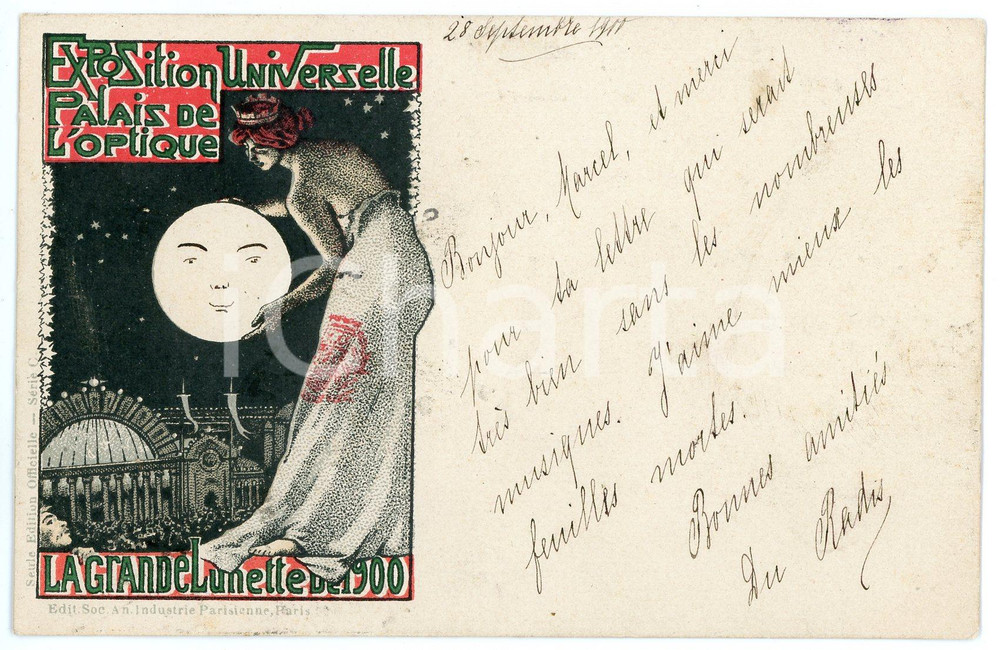 28 Septembre 1900
Exposition Universelle
Palais de
L'optique
Bonjour, Marcel, et merci
pour ta lettre qui serait
très bien sans les nombreuses
musiques. J'aime mieux les
feuilles mortes.
Bonnes amitiés
Du Radis
iCharta
Seule Edition Officielle — Série C
LA GrandE Lunette De 1900
Edit. Soc. An. Industrie Parisienne, Paris